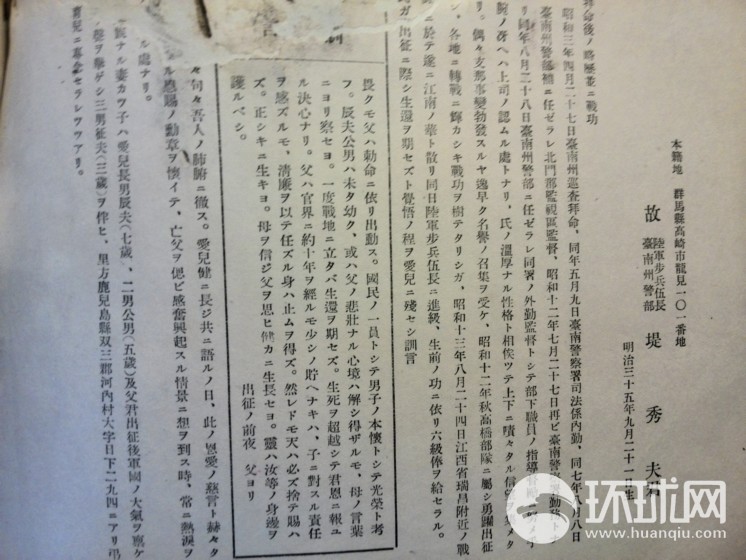 本籍地　群馬縣高崎市龍見一〇一番地
故　陸軍步兵伍長
臺南州警部　堤　秀　夫
明治三十五年九月二十一日生
拜命後ノ略歷並ニ戰功
昭和三年四月二十七日臺南州巡査拜命、同年五月九日臺南警察署司法係內勤、同七年八月八日
臺南州警部補ニ任ゼラレ北門郡監視區監督、昭和十二年七月二十七日再ビ臺南警
リ同年八月二十八日臺南州警部ニ任ゼラレ同署ノ外勤監督トシテ部下職員ノ指導
腕ノ冴ヘハ上司ノ認ムル處トナリ、氏ノ溫厚ナル性格ト相俟ツテ上下ニ嘖々タル信
リ。偶々支那事變勃發スルヤ逸早ク名譽ノ召集ヲ受ケ、昭和十二年秋高橋部隊ニ屬シ勇躍出征
シ、各地ニ轉戰シ輝カシキ戰功ヲ樹テタリシガ、昭和十三年八月二十四日江西省瑞昌附近ノ戰
ニ於テ遂ニ江南ノ華ト散リ同日陸軍步兵伍長ニ進級、生前ノ功ニ依リ六級俸ヲ給セラル。
時ガ出征ニ際シ生還ヲ期セズト覺悟ノ程ヲ愛兒ニ殘セシ訓言
畏クモ父ハ勅命ニ依リ出動ス。國民ノ一員トシテ男子ノ本懷トシテ光榮ト考
フ。辰夫公男ハ未タ幼ク、或ハ父ノ悲壯ナル心境ハ解シ得ザルモ、母ノ言葉
ニヨリ察セヨ。一度戰地ニ立タバ生還ヲ期セズ。生死ヲ超越シテ君恩ニ報ユ
ル決心ナリ。父ハ官界ニ約十年ヲ經ルモ少シノ貯ヘナキハ、子ニ對スル責任
ヲ感ズルモ、淸廉ヲ以テ任ズル身ハ止ムヲ得ズ。然レドモ天ハ必ズ捨テ賜ハ
ズ。正シキニ生キヨ。母ヲ信ジ父ヲ思ヒ健カニ生長セヨ。靈ハ汝等ノ身邊ヲ
護ルベシ。　出征ノ前夜　父ヨリ
々句々吾人ノ肺腑ニ徹ス。愛兒健ニ長ジ共ニ語ルノ日、此ノ恩愛ノ慈言ト赫々タ
ル恩賜ノ勳章ヲ懷イテ、亡父ヲ偲ビ感奮興起スル情景ニ想ヲ到ス時、常ニ熱淚ヲ
ル處ナリ。
淑ナル妻カツ子ハ愛兒長男辰夫（七歲）、二男公男（五歲）及父君出征後軍國ノ大氣ヲ
聲ヲ擧ゲシ三男征夫（三歲）ヲ伴ヒ、里方鹿兒島縣双三郡河內村大字日下二九四ニアリ
育兒ニ專念セラレツツアリ。
环球网
www.huanqiu.com